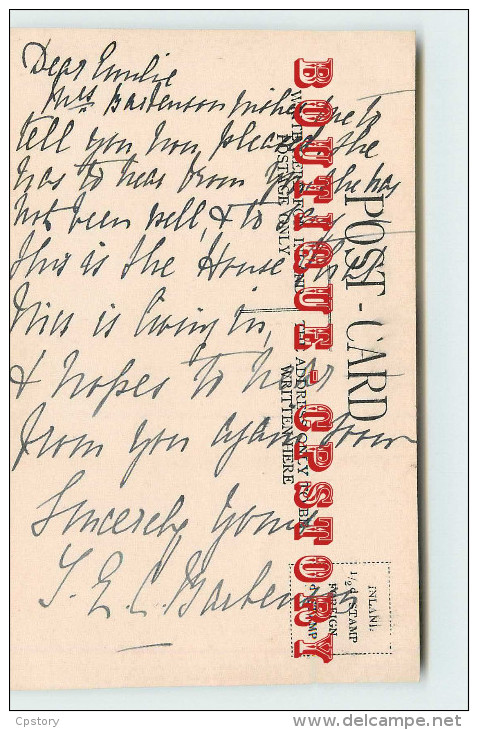 Dear Emilie
Mrs Barbenson wishes me to
tell you how pleased she
was to hear from you she has
not been well, & to
this is the House
Miss is living in,
& hopes to hear
from you again soon
Sincerely yours
T. E. C. Barbenson
POST-CARD
THE ADDRESS ONLY TO BE
WRITTEN HERE
POSTAGE ONLY
INLAND
½d STAMP
FOREIGN
BOUTIQUE-CPSTORY
Cpstory
http://www.delcampe.net